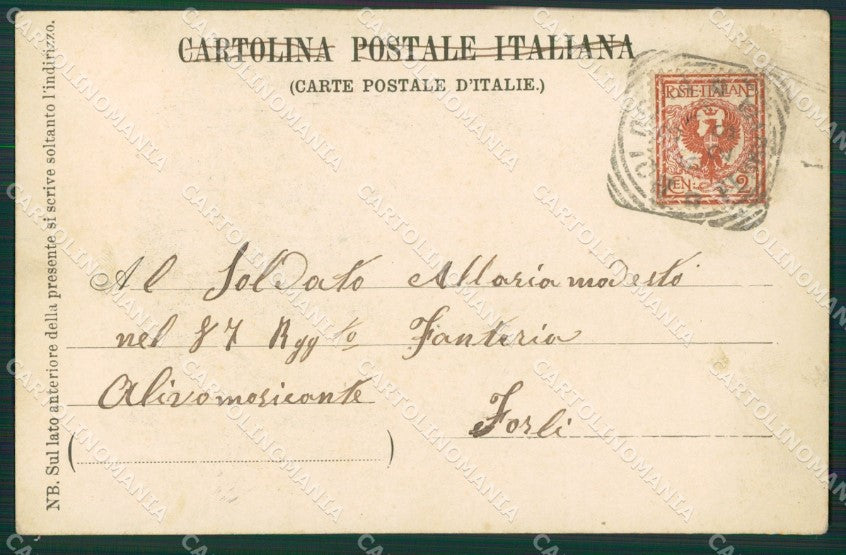 CARTOLINA POSTALE ITALIANA
(CARTE POSTALE D'ITALIE.)
POSTE·ITALIANE
CEN. 2
Al Soldato Allaria modesto
nel 87 Rgg to Fanteria
Alivo musicante
Forlì
NB. Sul lato anteriore della presente si scrive soltanto l'indirizzo.
CARTOLINOMANIA